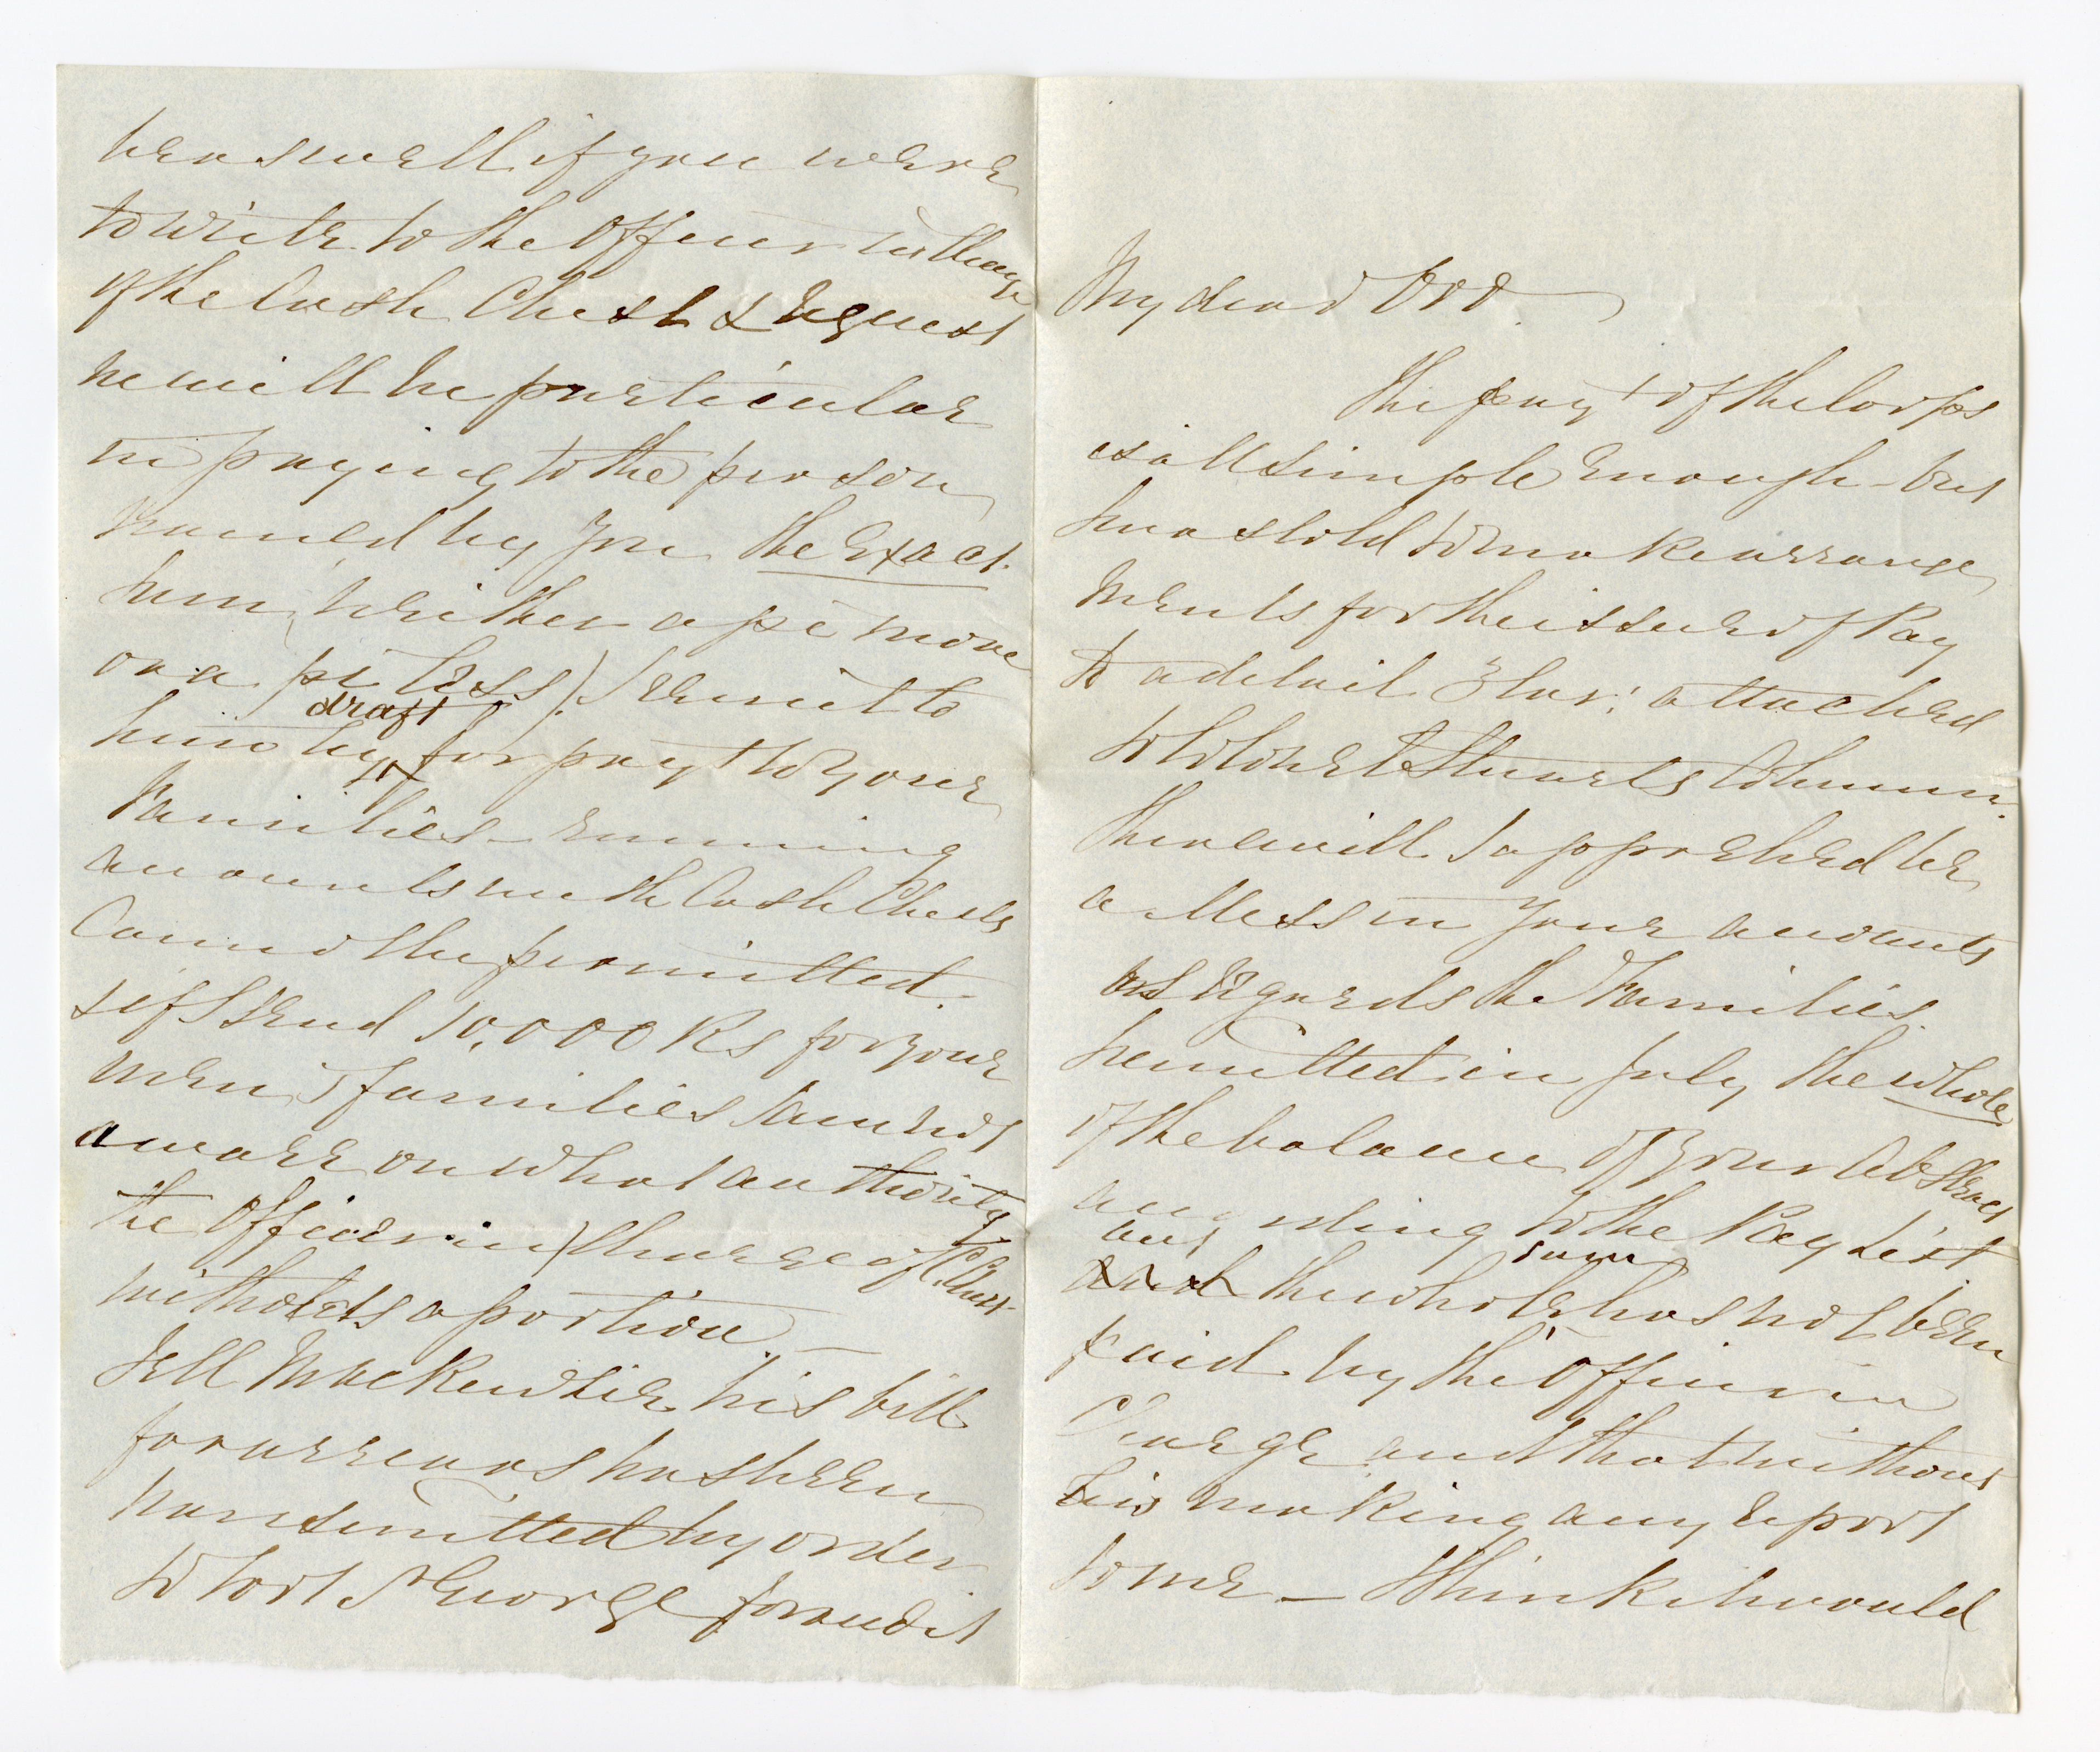 My dear Orr.
The pay^t of the Corps
is all simple enough - but
how a told to make arrange
ments for the issue of Pay
to a detail Elar: attached
to Colonel Stuarts Column.
There will I apprehend be
a Mess in your accounts
as regards the Families.
I remitted in July the whole
of the balance of your Abstract
according to the Pay List
but
the whole sum has not been
paid by the Officer in
Charge and that without
his making any report
to me — I think it would
be as well if you were
to write to the Officer in Charge
of the Cash Chest & request
he will be particular
in paying to the person
named by you the exact
sum, (neither a pi more
or a pi less) I remit to
him by draft for pay^t to your
Families - running
accounts with Cash Chests
Cannot be permitted.
& if I send 10,000 Rs for your
men's families I am not
aware on what authority
the Officer in Charge of C. Chest
witholds a portion. —
Tell Mackenzie his bill
for arrears has been
transmitted by order
to Fort St George for audit